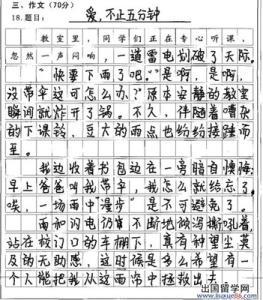 三、作文（70分）
18.题目： 爱，不止五分钟
教室里，同学们正在专心听课，
忽然一声闷响，一道雷电划破了天际。
“快要下雨了吧”“是啊，是啊，
没带伞这可怎么办？”原本安静的教室
瞬间就炸开了锅。不久，伴随着嘈杂
的下课铃，豆大的雨点也纷纷接踵而
至。
我边收着书包边在一旁暗自懊悔，
早上爸爸叫我带伞，我怎么就给忘了
唉，一场雨中漫步是不可避免了。
雨和闪电仍 不断地 嘶吼着
站在校门口的车棚下，真有种望尘莫
及的无助感，这时候是多么希望有一
个人能把我从这雨帘中拯救出去。
出国留学网
www.liuxue86.com